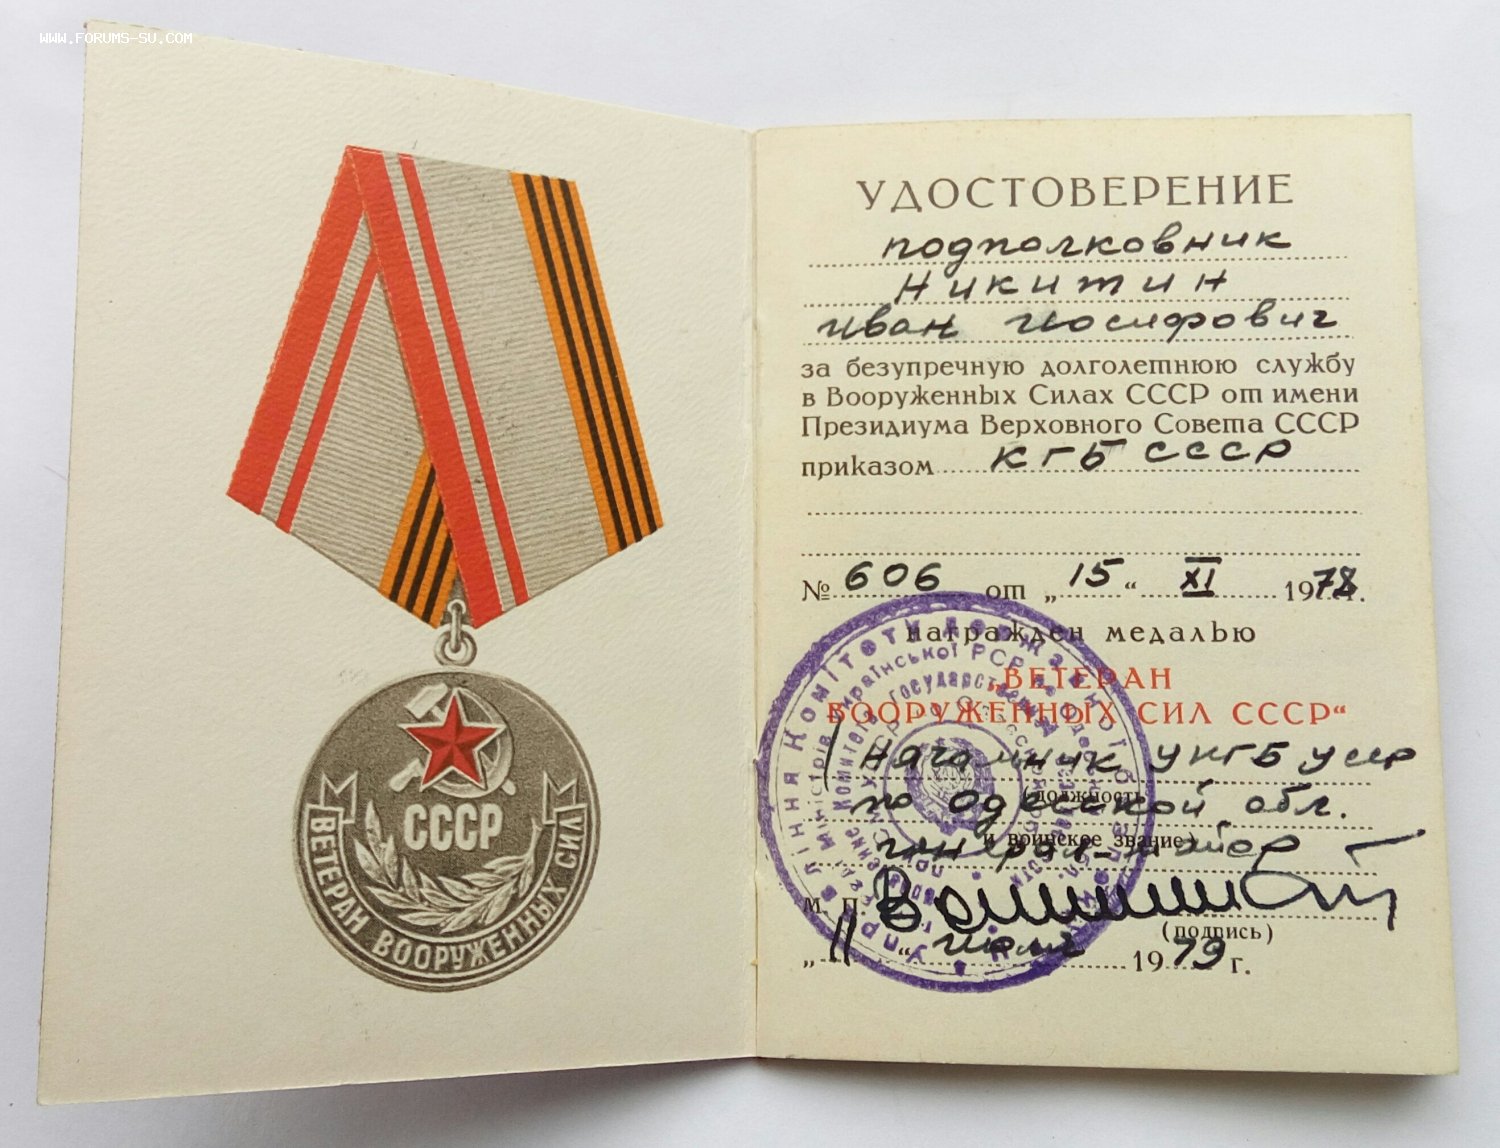 WWW.FORUMS-SU.COM
СССР
ВЕТЕРАН ВООРУЖЕННЫХ СИЛ
УДОСТОВЕРЕНИЕ
подполковник
Никитин
Иван Иосифович
за безупречную долголетнюю службу
в Вооруженных Силах СССР от имени
Президиума Верховного Совета СССР
приказом КГБ СССР
№ 606 от „15“ XI 1978 г.
награжден медалью
„ВЕТЕРАН
ВООРУЖЕННЫХ СИЛ СССР“
Начальник УКГБ УССР
(должность
по Одесской обл.
и воинское звание)
генерал-майор
М. П.
(подпись)
„11“ июля 1979 г.